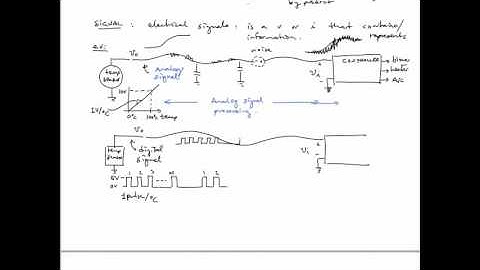 by product
SIGNAL : electrical signals, is a v or i that contains/
represents
information.
noise
Vo
temp
sensor
Analog
signal
Vi
CONTROLLER
heater
A/C
1V/°C
100
0°C 100°C temp
Analog signal
processing
Vo
temp
sensor
Digital
signal
Vi
5V
0V
1 2 3 1 2
1 pulse/°C